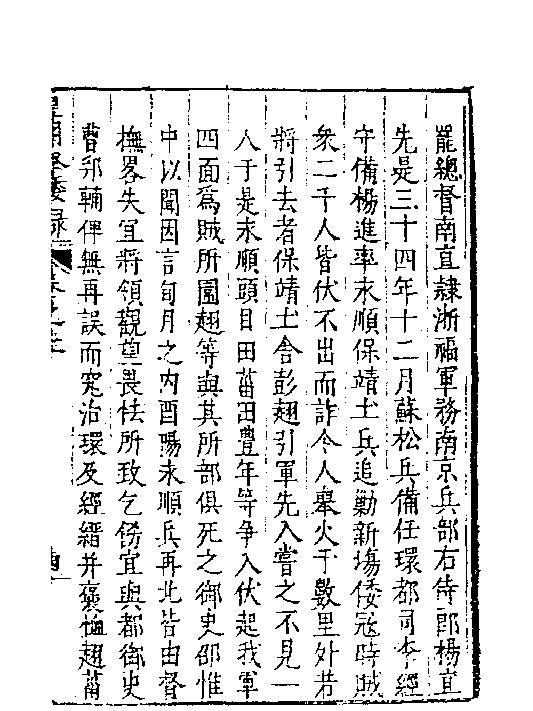 罷總督南直隷浙福軍務南京兵部右侍郎楊宜
先是三十四年十二月蘇松兵備任環都司李經
守備楊進率永順保靖土兵追勦新塲倭寇時賊
衆二千人皆伏不出而詐令人舉火于數里外若
將引去者保靖土舍彭翅引軍先入嘗之不見一
人于是永順頭目田菑田豊年等爭入伏起我軍
四面爲賊所圍翅等與其所部俱死之御史邵惟
中以聞因言旬月之内酉陽永順兵再北皆由督
撫畧失宜將領觀望畏怯所致乞飭宜與都御史
曹邦輔俾無再誤而究治環及經縉并褒恤翅菑